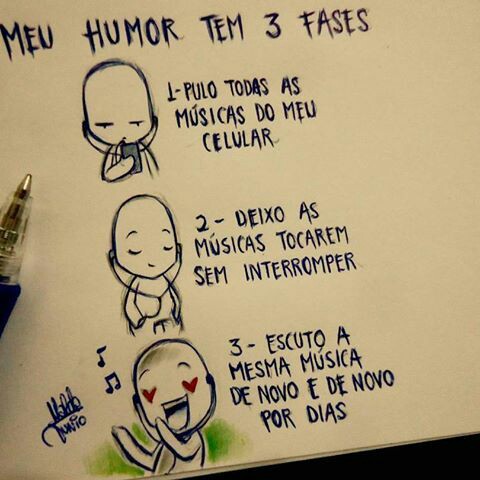 MEU HUMOR TEM 3 FASES
1-PULO TODAS AS
MÚSICAS DO MEU
CELULAR
2- DEIXO AS
MÚSICAS TOCAREM
SEM INTERROMPER
3- ESCUTO A
MESMA MÚSICA
DE NOVO E DE NOVO
POR DIAS